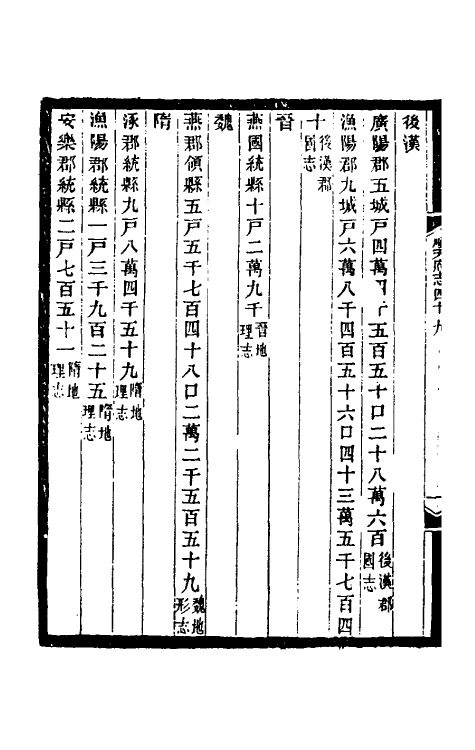 後漢
廣陽郡五城戸四萬四千五百五十口二十八萬六百後漢郡國志
漁陽郡九城戸六萬八千四百五十六口四十三萬五千七百四
十後漢郡國志
晉
燕國統縣十戸二萬九千晉地理志
魏
燕郡領縣五戸五千七百四十八口二萬二千五百五十九魏地形志
隋
涿郡統縣九戸八萬四千五十九隋地理志
漁陽郡統縣一戸三千九百二十五隋地理志
安樂郡統縣二戸七千五百五十一隋地理志